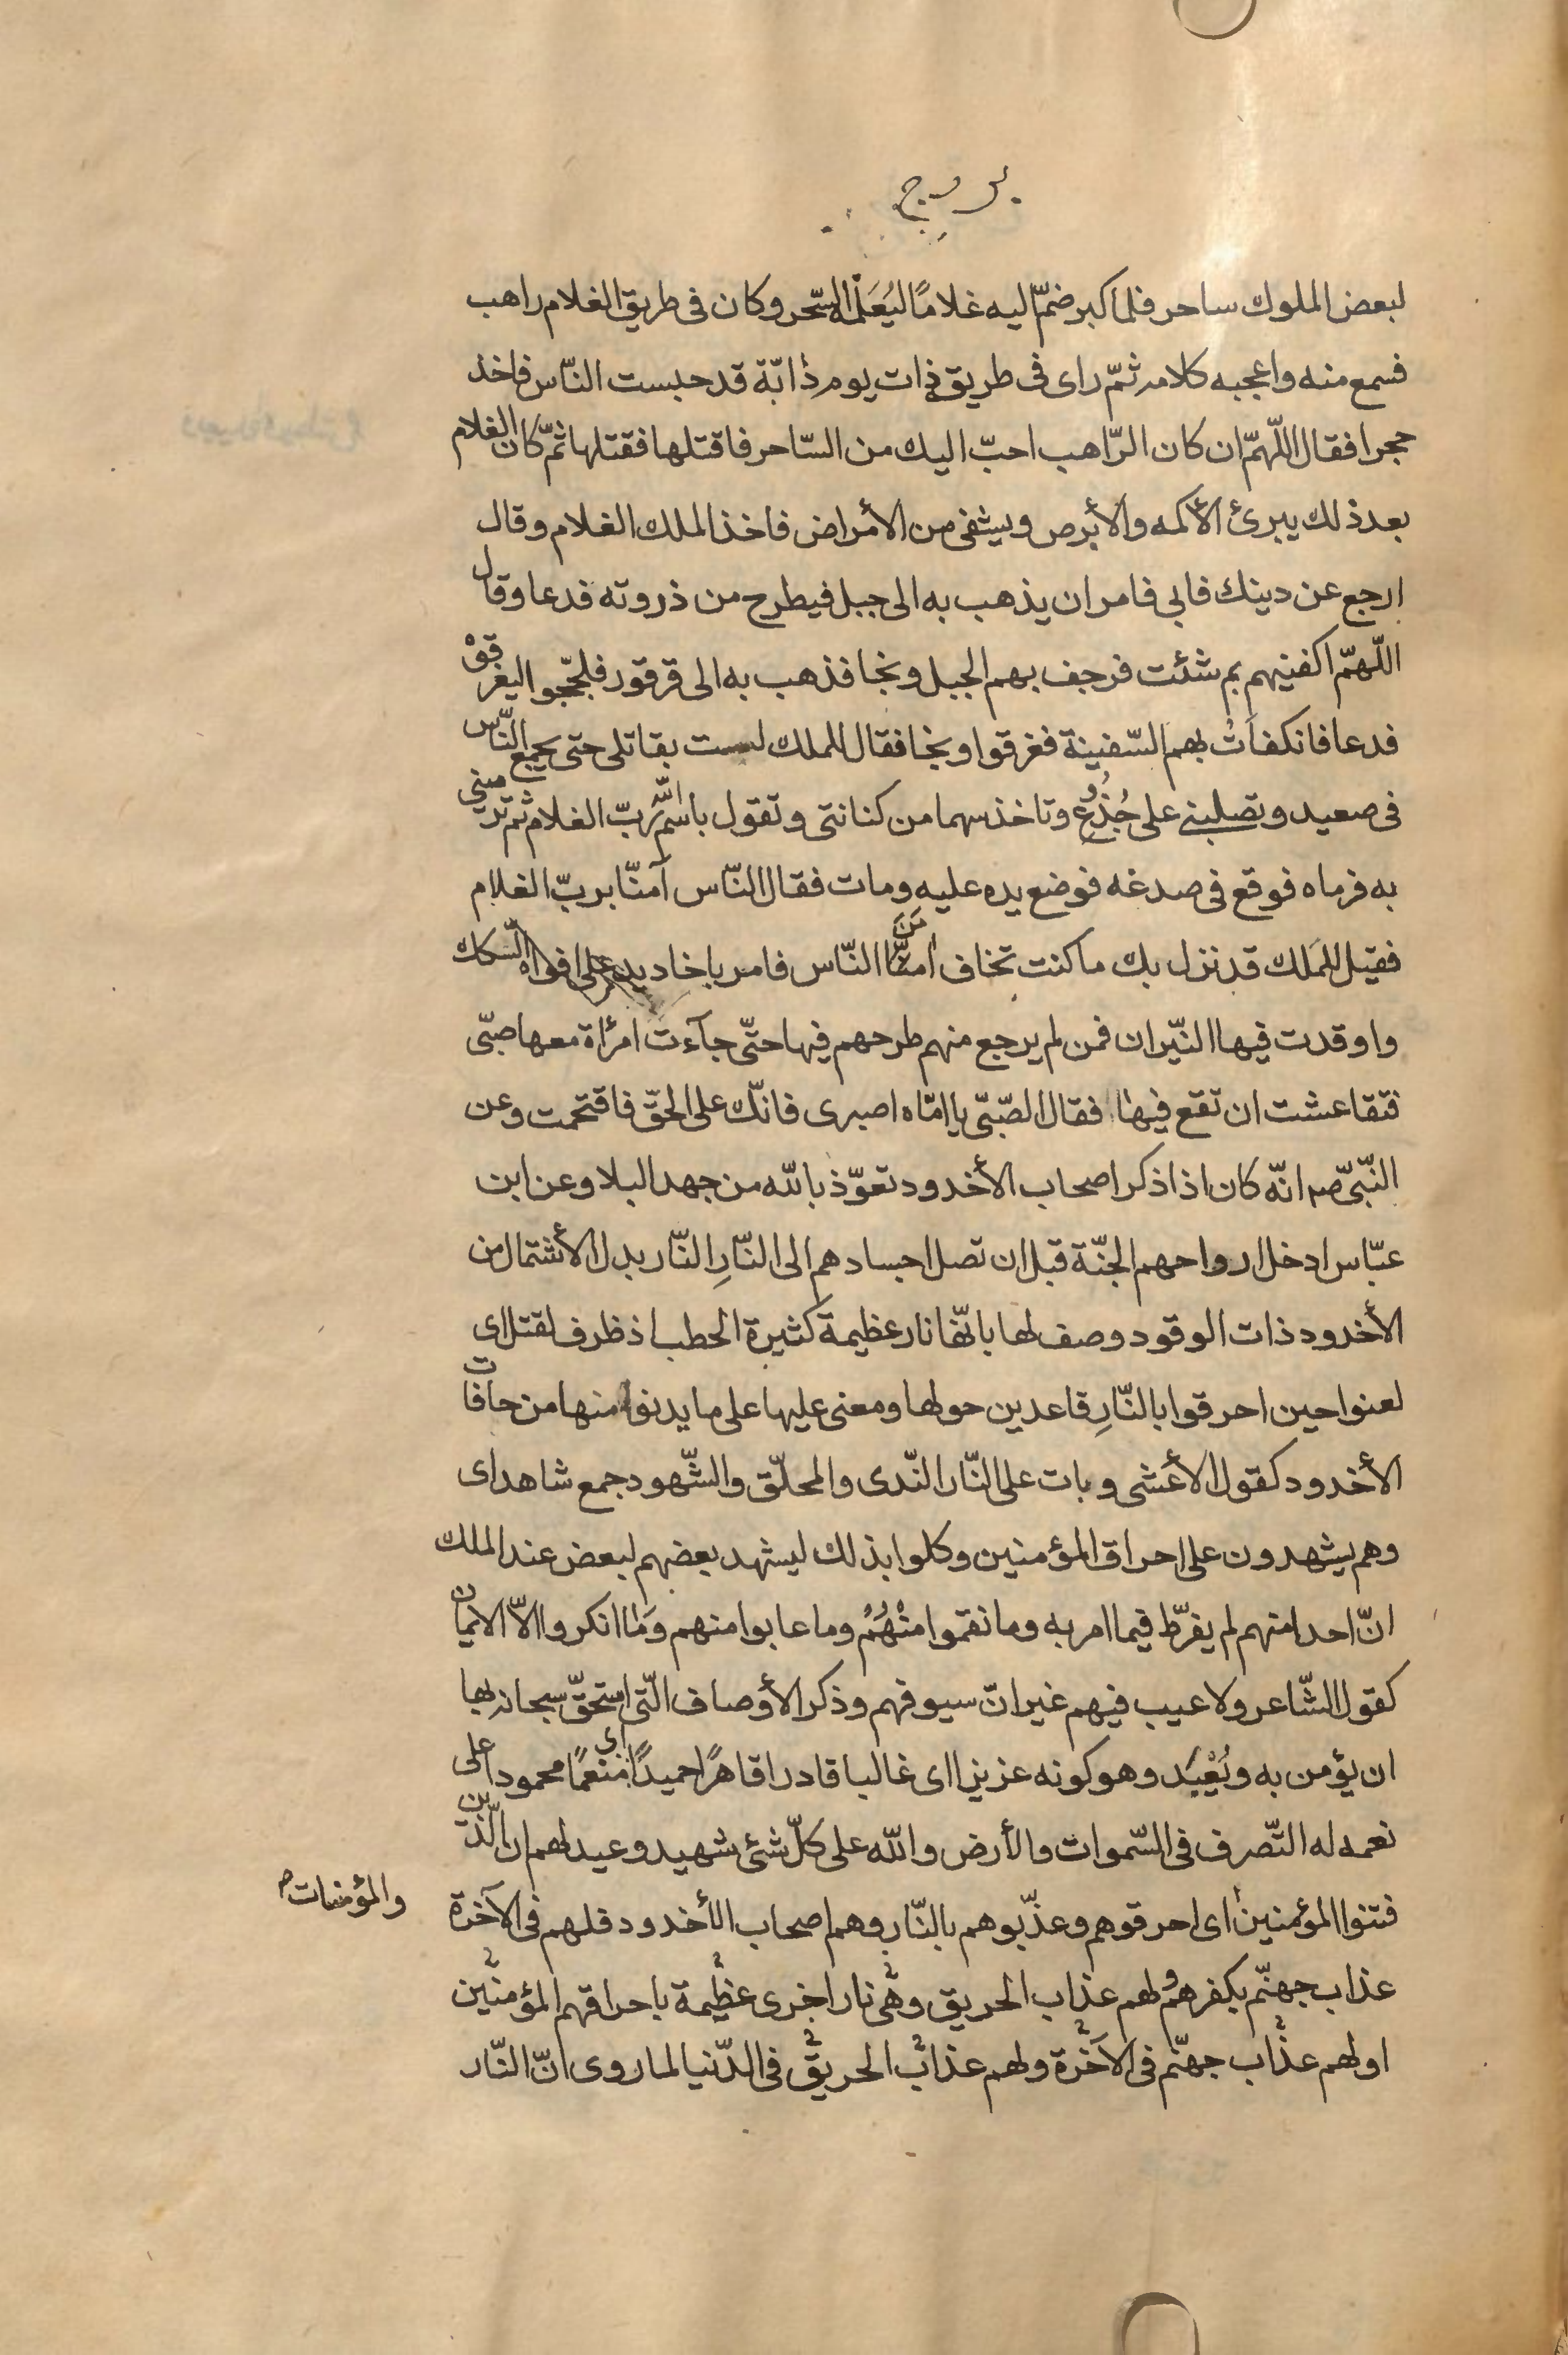 بروج
لبعض الملوك ساحر فلما كبر ضمّ اليه غلامًا ليُعَلّمه السّحر وكان فى طريق الغلام راهب
فسمع منه واعجبه كلامه ثمّ راى فى طريق ذات يوم ذابّة قد حبست النّاس فاخذ
حجرا فقال اللّهمّ ان كان الرّاهب احبّ اليك من السّاحر فاقتلها فقتلها ثمّ كان الغلام
بعد ذلك يبرئ الأكمه والأبرص ويشفى من الأمراض فاخذ الملك الغلام وقال
ارجع عن دينك فابى فامر ان يذهب به الى جبل فيطرح من ذروته فدعا وقال
اللّهمّ اكفنيهم بم شئت فرجف بهم الجبل ونجا فذهب به الى قرقور فلجّجوا ليغرقوْ
فدعا فانكفأت بهم السّفينة فغرقوا ونجا فقال للملك لست بقاتلى حتى يجمع النّاس
فى صعيد وتصلبنى على جُذُوع وتاخذ سهما من كنانتى وتقول باسم اللّه ربّ الغلام ثم ترمينى
به فرماه فوقع فى صدغه فوضع يده عليه ومات فقال النّاس آمنّا بربّ الغلام
فقيل للمَلك قد نزل بك ما كنت تخاف امَنَ النّاس فامر باخاديد على افواه السّكك
واوقدت فيها النّيران فمن لم يرجع منهم طرحهم فيها حتّى جآءت امرأة معها صبّى
فتقاعشت ان تقع فيها فقال الصّبّى يا امّاه اصبرى فانّك على الحقّ فاقتحمت وعن
النّبّى صم انّه كان اذا ذكر اصحاب الأخدود تعوّذ بالله من جهد البلا وعن ابن
عبّاس ادخل ارواحهم الجنّة قبل ان تصل اجسادهم الى النّارِ النّار بدل الأشتمال من
الأخدود ذات الوقود وصف لها بانّها نار عظيمة كثيرة الحطب اذ ظرف لقتل اى
لعنوا حين احرقوا بالنّارِ قاعدين حولها ومعنى عليها على ما يدنوا منها من حافات
الأخدود كقول الأعشى وبات على النّار النّدى والمحلّق والشّهود جمع شاهد اى
وهم يشهدون على احراق المؤمنين وكلوا بذلك ليشهد بعضهم لبعض عند الملك
انّ احدا منهم لم يفرّط فيما امر به وما نقموا منْهُمْ وما عابوا منهم وَما انكروا الاّ الايمان
كقول الشّاعر ولا عيب فيهم غير انّ سيوفهم وذكر الأوصاف الّتى استحقّ سبحانه بها
ان يؤمن به ويُعْبَد وهو كونه عزيزا اى غالبا قادرا قاهرًا حميدًا اى منعمًا محمودا على
نعمه له التّصرف فى السّموات والأرض واللّه على كلّ شئ شهيد وعيد لهم ان الّذين
فتنوا المؤمنين اى احرقوهم وعذّبوهم بالنّار وهم اصحاب الأخدود فلهم فى الآخرة
والمؤمنات م
عذاب جهنّم بكفرهم ولهم عذاب الحريق وهى نار اخرى عظيمة باحراقهم المؤمنين
او لهم عذاب جهنّم فى الآخرة ولهم عذاب الحريق فى الدّنيا لما روى انّ النّار